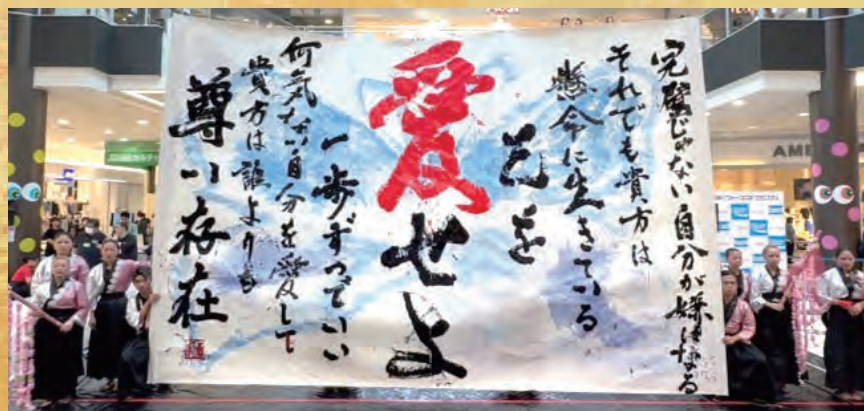 完璧じゃない自分が嫌になる
それでも貴方は
懸命に生きている
己を
愛せよ
一歩ずつでいい
何気ない自分を愛して
貴方は誰よりも
尊い存在